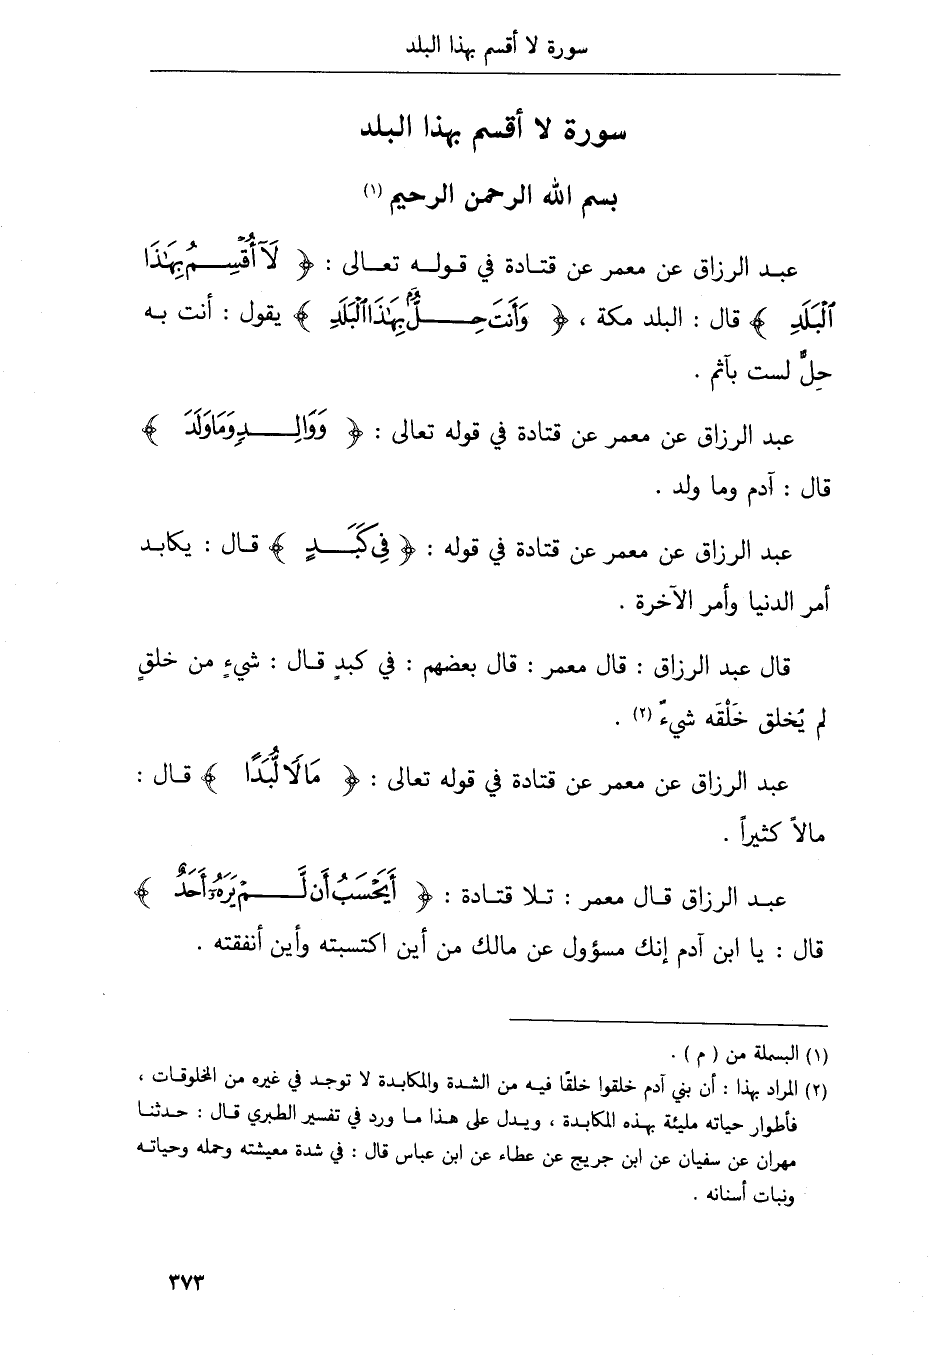 سورة لا أقسم بهذا البلد
سورة لا أقسم بهذا البلد
بسم الله الرحمن الرحيم (١)
عبد الرزاق عن معمر عن قتادة في قوله تعالى : ﴿ لَآ أُقْسِمُ بِهَٰذَا
ٱلْبَلَدِ ﴾ قال : البلد مكة ، ﴿ وَأَنتَ حِلٌّۢ بِهَٰذَا ٱلْبَلَدِ ﴾ يقول : أنت به
حِلٌّ لست بآثم .
عبد الرزاق عن معمر عن قتادة في قوله تعالى : ﴿ وَوَالِدٍ وَمَا وَلَدَ ﴾
قال : آدم وما ولد .
عبد الرزاق عن معمر عن قتادة في قوله : ﴿ فِي كَبَدٍ ﴾ قال : يكابد
أمر الدنيا وأمر الآخرة .
قال عبد الرزاق : قال معمر : قال بعضهم : في كبدٍ قال : شيءٍ من خلقٍ
لم يُخلق خَلْقَه شيءٌ (٢) .
عبد الرزاق عن معمر عن قتادة في قوله تعالى : ﴿ مَالًا لُّبَدًا ﴾ قال :
مالاً كثيراً .
عبد الرزاق قال معمر : تلا قتادة : ﴿ أَيَحْسَبُ أَن لَّمْ يَرَهُۥٓ أَحَدٌ ﴾
قال : يا ابن آدم إنك مسؤول عن مالك من أين اكتسبته وأين أنفقته .
(١) البسملة من ( م ) .
(٢) المراد بهذا : أن بني آدم خلقوا خلقًا فيه من الشدة والمكابدة لا توجد في غيره من المخلوقات ،
فأطوار حياته مليئة بهذه المكابدة ، ويدل على هذا ما ورد في تفسير الطبري قال : حدثنا
مهران عن سفيان عن ابن جريج عن عطاء عن ابن عباس قال : في شدة معيشته وحمله وحياته
ونبات أسنانه .
٣٧٣